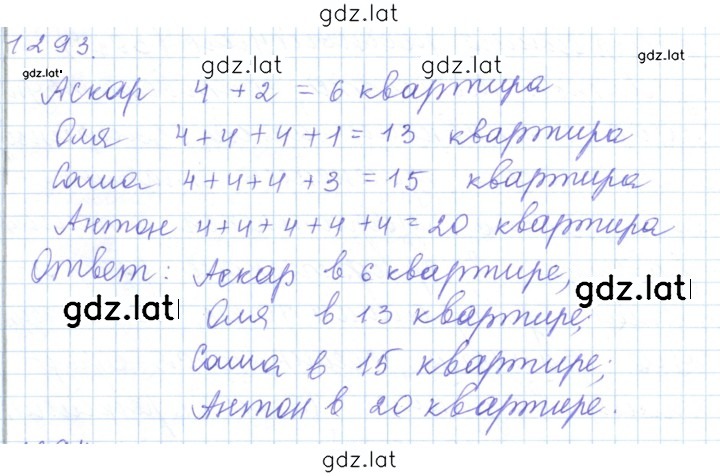 gdz.lat
1293.
gdz.lat gdz.lat gdz.lat gdz.lat
Аскар 4 + 2 = 6 квартира
Оля 4+4+4+1=13 квартира
Саша 4+4+4+3=15 квартира
Антон 4+4+4+4+4=20 квартира
Ответ: Аскар в 6 квартире,
gdz.lat gdz.lat
Оля в 13 квартире;
Саша в 15 квартире;
Антон в 20 квартире.
gdz.lat